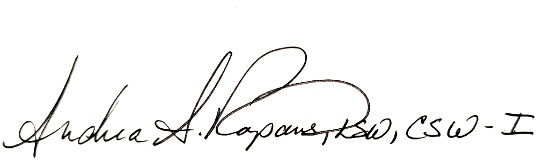 Andrea S. Rapans, BSW, CSW - I